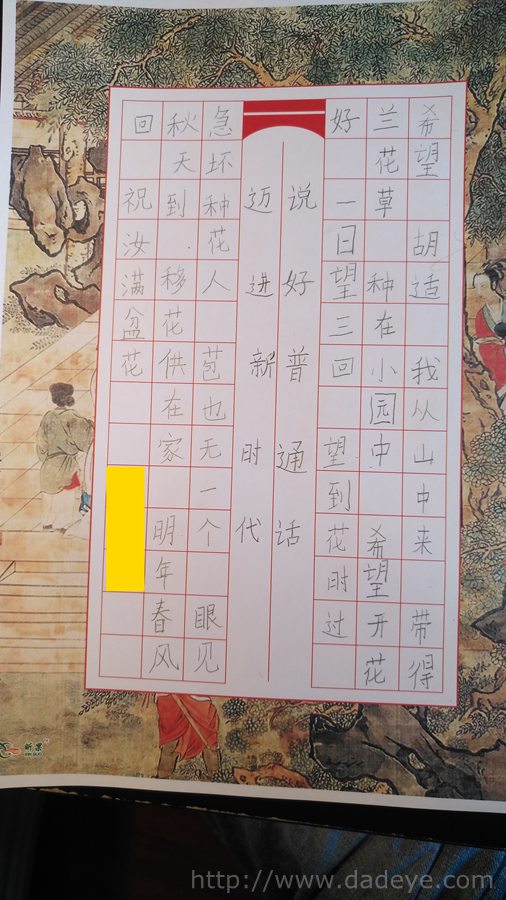 希望 胡适 我从山中来 带得
兰花草 种在小园中 希望开花
好 一日望三回 望到花时过
说好普通话
迈进新时代
急坏种花人 苞也无一个 眼见
秋天到.移花供在家 明年春风
回 祝汝满盆花
http://www.dadeye.com